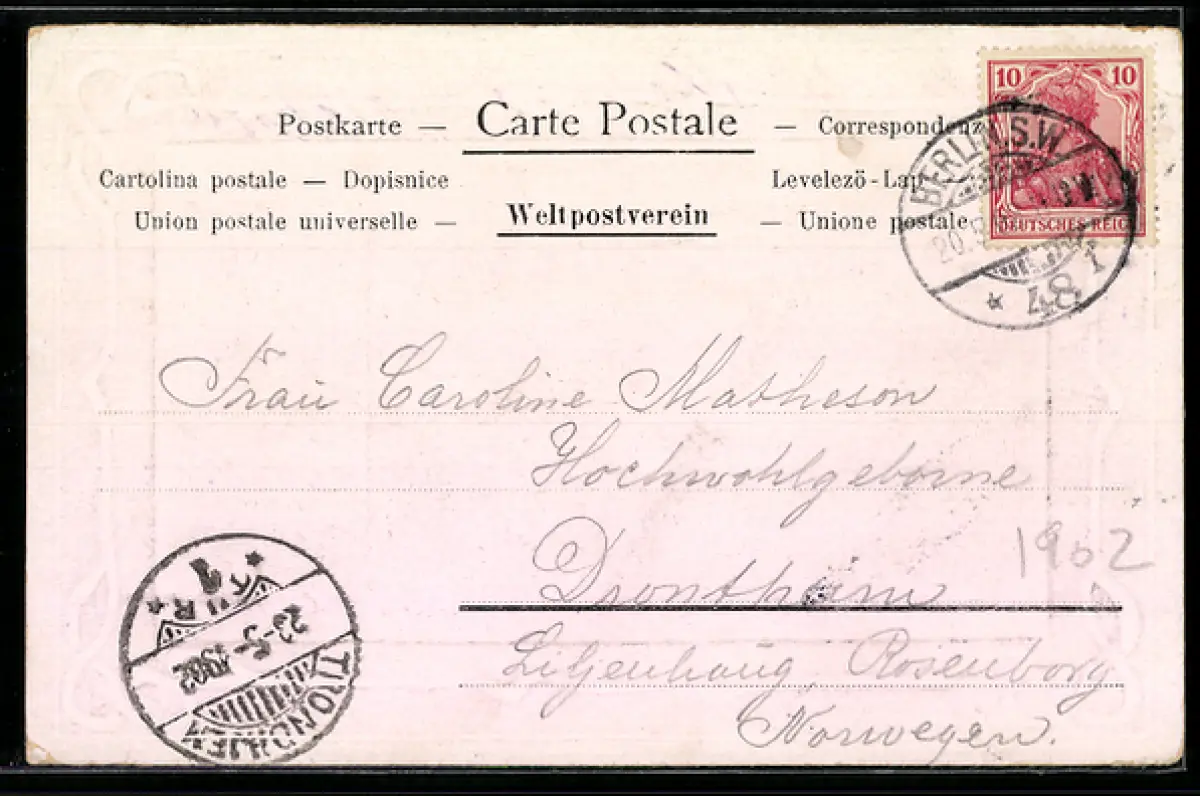 Postkarte — Carte Postale — Correspondenz
Cartolina postale — Dopisnice
Levelezö-Lap
Union postale universelle — Weltpostverein — Unione postale
10 10
DEUTSCHES REICH
BERLIN.S.W.
20.5
* 48 1
Frau Caroline Matheson
Hochwohlgeborne
Drontheim
Liljenhaug, Rosenborg
Norwegen.
1902
TRONDHJEM
23-5-1902
1